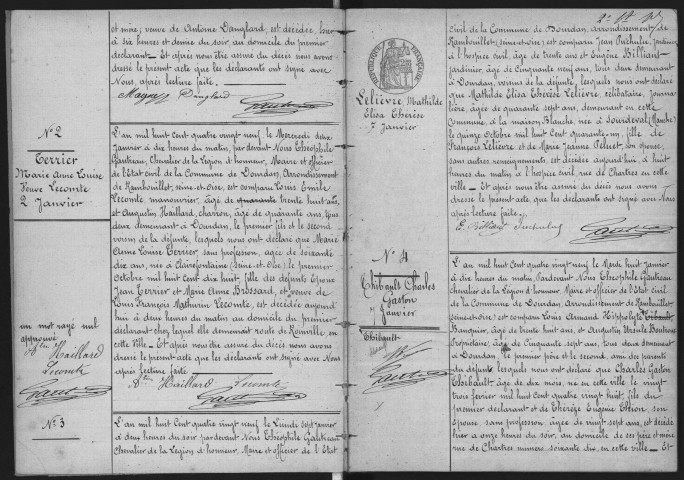 et mère, veuve de Antoine Danglard, est décédée, hier
à six heures et demie du soir, au domicile du premier
déclarant — Et après nous être assuré du décès nous avons
dressé le présent acte que les déclarants ont signé avec
Nous, après lecture faite
Danglard
Gautreau
N° 2
Terrier
Marie Anne Louise
Veuve Lecomte
2 Janvier
L'an mil huit Cent quatre vingt neuf, le Mercredi deux
Janvier à dix heures du matin, par devant Nous Théophile
Gautreau, Chevalier de la Légion d'honneur, Maire et officier
de l'Etat civil de la Commune de Dourdan, Arrondissement
de Rambouillet, Seine-et-Oise, est comparu Louis Emile
Lecomte manouvrier, âgé de quarante trente huit ans,
et Augustin Haillard, charron, âgé de quarante ans, tous
deux demeurant à Dourdan, le premier, fils et le second
voisin de la défunte, lesquels nous ont déclaré que Marie
Anne Louise Terrier sans profession, âgée de soixante
dix ans, née à Clairefontaine (Seine-et-Oise) le premier
Octobre mil huit Cent dix huit, fille des défunts époux
Jean Terrier et Marie Anne Brossard, et veuve de
Louis François Mathurin Lecomte, est décédée aujourd'
hui à deux heures du matin au domicile du premier
déclarant chez lequel elle demeurait route de Roinville, en
cette Ville — Et après nous être assuré du décès nous avons
dressé le présent acte que les déclarants ont signé avec Nous
après lecture faite
Haillard Lecomte
Gautreau
un mot rayé nul
approuvé
Haillard
Lecomte
Gautreau
N° 3
L'an mil huit Cent quatre vingt neuf le Lundi sept Janvier
à deux heures du soir par devant Nous Théophile Gautreau
Chevalier de la Légion d'honneur, Maire et officier de l'Etat
Lelièvre, Mathilde
Elisa Thérèse
7 Janvier
civil de la Commune de Dourdan, arrondissement de
Rambouillet (Seine-et-Oise) est comparu Jean
à l'hospice civil, âgé de trente ans et Eugène Billiard
jardinier, âgé de Cinquante neuf ans, tous deux demeurant
à Dourdan, voisins de la défunte, lesquels nous ont déclaré
que Mathilde Elisa Thérèse Lelièvre, célibataire, journa-
lière, âgée de quarante sept ans, demeurant en cette
Commune, à la maison Blanche, née à Sourdeval (Manche)
le quinze Octobre mil huit Cent quarante-un, fille de
François Lelièvre et de Marie Jeanne Peluet, son épouse,
sans autres renseignements, est décédée aujourd'hui, à huit
heures du matin, à l'hospice civil, rue de Chartres en cette
ville — Et après nous être assuré du décès nous avons
dressé le présent acte, que les déclarants ont signé avec Nous
après lecture faite.
E. Billiard
Gautreau
N° 4
Thibault Charles
Gaston
7 Janvier
Thibault
Gautreau
L'an mil huit Cent quatre vingt neuf, le Mardi huit Janvier
à dix heures du matin, Pardevant Nous Théophile Gautreau
chevalier de la Légion d'honneur, Maire et officier de l'Etat civil
de la Commune de Dourdan, Arrondissement de Rambouillet
(Seine-et-Oise) est comparu Louis Armand Hippolyte Thibault
Banquier, âgé de trente huit ans, et Augustin Ursule
Propriétaire, âgé de Cinquante sept ans, tous deux demeurant
à Dourdan, le premier père et le second, ami des parents
du défunt, lesquels nous ont déclaré que Charles Gaston
Thibault, âgé de dix mois, né en cette ville le vingt
trois février mil huit Cent quatre vingt huit, fils du
premier déclarant et de Thérèse Eugénie Thion, son
épouse sans profession, âgée de vingt sept ans, est décédé
hier à onze heures du soir, au domicile de ses père et mère
rue de Chartres numéro soixante dix, en cette ville — Et